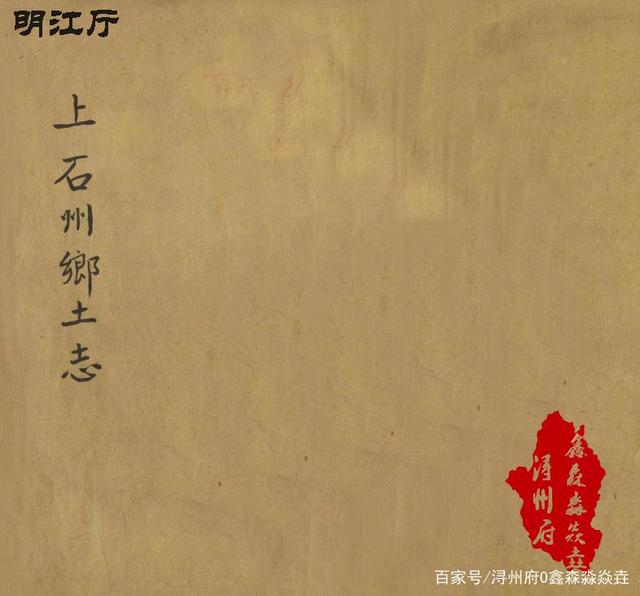 明江厅
上石州鄉土志
鑫森淼焱垚
浔州府
百家号/浔州府0鑫森淼焱垚